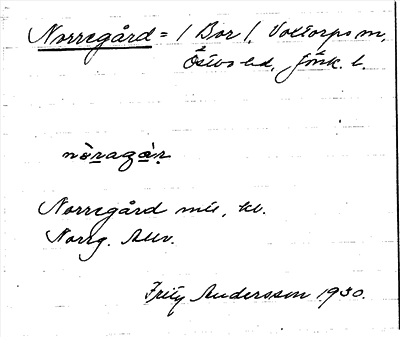 Norregård = / Bor /, Voltorps sn,
Östbo hd, Jönk. l.
nòragàr
Norregård mtl, kv.
Norrg. Allv.
Fritz Andersson 1930.